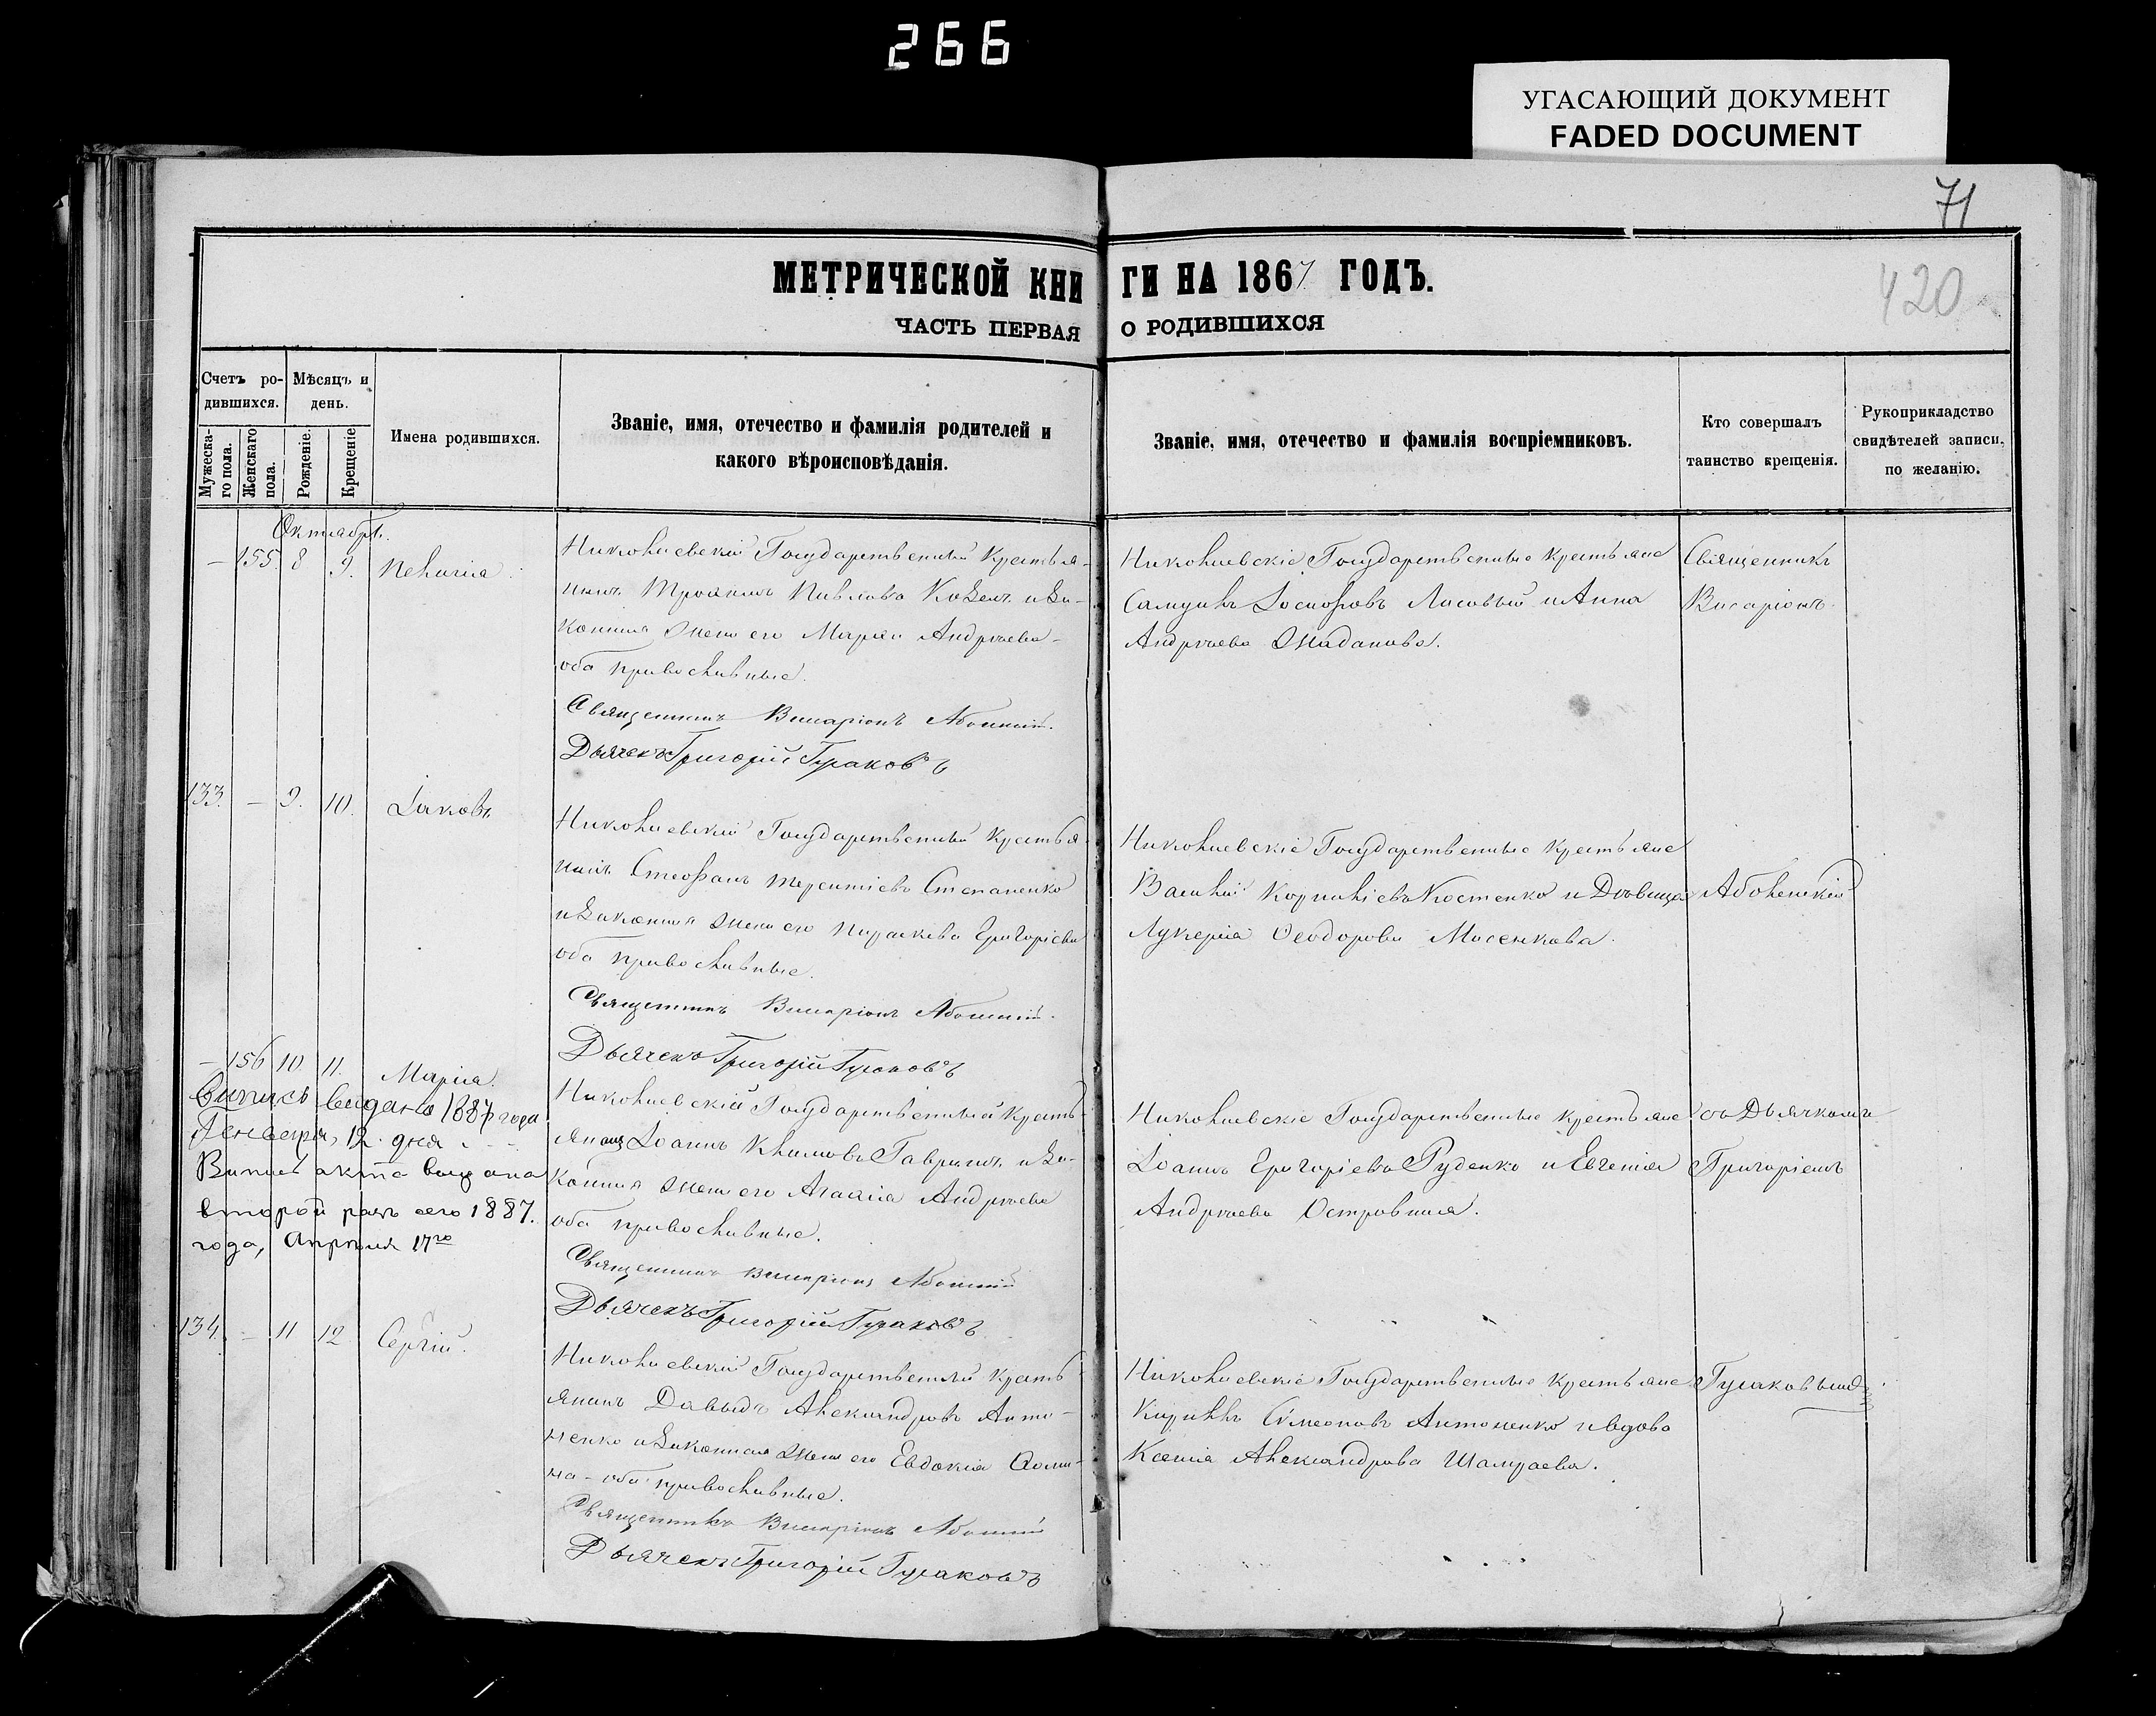 266
УГАСАЮЩИЙ ДОКУМЕНТ
FADED DOCUMENT
71
420
МЕТРИЧЕСКОЙ КНИГИ НА 1867 ГОДЪ.
ЧАСТЬ ПЕРВАЯ О РОДИВШИХСЯ
Счетъ ро-
дившихся.
Мѣсяцъ и
день.
Мужеска-
го пола.
Женскаго
пола.
Рожденіе.
Крещеніе
Имена родившихся.
Званіе, имя, отечество и фамилія родителей и
какого вѣроисповѣданія.
Званіе, имя, отечество и фамилія воспріемниковъ.
Кто совершалъ
таинство крещенія.
Рукоприкладство
свидѣтелей записи,
по желанію.
Октябрь.
— 155. 8 9. Пелагія
Николаевскій Государственный Крестья-
нинъ Трофимъ Павловъ Козелъ и За-
конная жена его Марѳа Андреева
оба православные.
Священникъ Висаріонъ
Дьячекъ Григорій Гусаковъ
Николаевскіе Государственные Крестьяне
Самуилъ Іосифовъ Лисовый и Анна
Андреева Жаданова.
Священникъ
Висаріонъ
133. — 9. 10. Іаковъ
Николаевскій Государственный Крестья-
нинъ Стефанъ Терентіевъ Степаненко
и Законная жена его Параскева Григоріева
оба православные.
Священникъ Висаріонъ
Дьячекъ Григорій Гусаковъ
Николаевскіе Государственные Крестьяне
Василій Корниліевъ Костенко и Дѣвица
Лукерія Ѳеодорова Мисенкова.
— 156 10 11. Марія.
Выпись выдана 1887 года
Генваря, 12. дня.
Випись акта выдана
второй разъ сего 1887.
года, Апрѣля 17го
Николаевскій Государственный Кресть-
янинъ Іоаннъ Климовъ Гаврилъ и За-
конная жена его Агафія Андреева
оба православные.
Священникъ Висаріонъ
Дьячекъ Григорій Гусаковъ
Николаевскіе Государственные Крестьяне
Іоаннъ Григоріевъ Руденко и Евгенія
Андреева
съ Дьячкомъ
Григоріемъ
134. — 11 12 Сергій.
Николаевскій Государственный Кресть-
янинъ Давыдъ Александровъ Анто-
ненко и Законная жена его Евдокія Ѳоми-
на - оба православные.
Священникъ Висаріонъ
Дьячекъ Григорій Гусаковъ
Николаевскіе Государственные Крестьяне
Кириллъ Симеоновъ Антоненко и вдова
Ксенія Александрова Шамраева.
Гусаковымъ